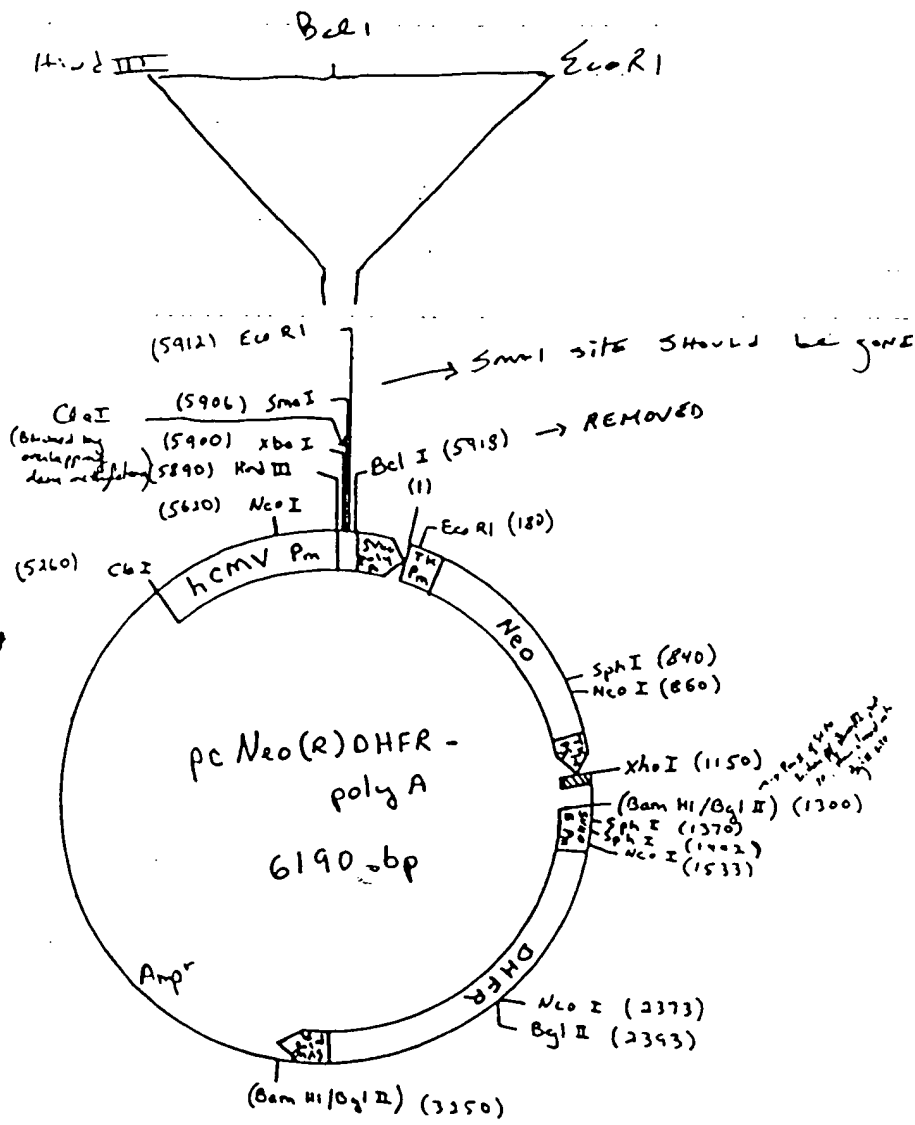 Bcl 1
Hind III
EcoR1
(5912) EcoR1
→ SmaI site SHOULD be gone
ClaI
(5906) SmaI
(Blocked by
overlapping
dam methylation)
(5900) XbaI
(5890) Hind III
Bcl I (5918) → REMOVED
(5620) NcoI
(1)
EcoR1 (182)
(5260) ClaI
hCMV Pm
TK
Pm
Neo
SphI (840)
NcoI (860)
XhoI (1150)
(Bam H1/Bgl II) (1300)
SphI (1370)
SphI (1442)
NcoI
(1533)
pcNeo(R)DHFR-
polyA
6190 bp
DHFR
Ampr
NcoI (2373)
Bgl II (2393)
(Bam H1/Bgl II) (3250)